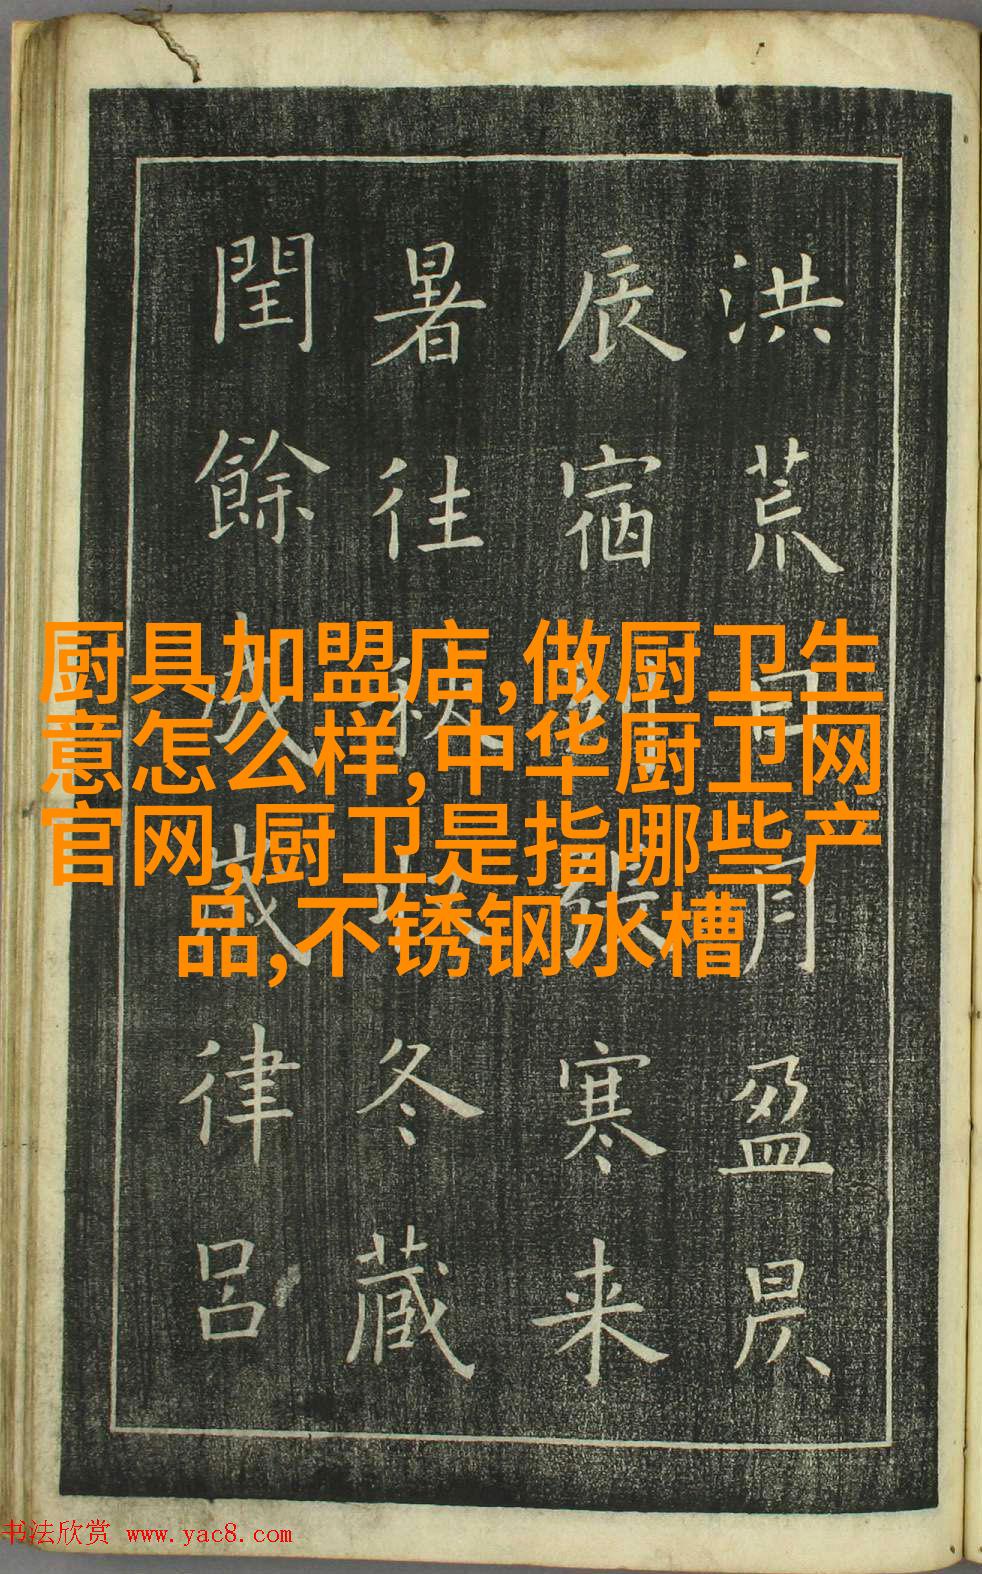 洪荒日月盈昃
辰宿列張寒来
暑往秋收冬藏
閏餘成歲律呂
厨具加盟店,做厨卫生
意怎么样,中华厨卫网
官网,厨卫是指哪些产
品,不锈钢水槽
书法欣赏 www.yac8.com